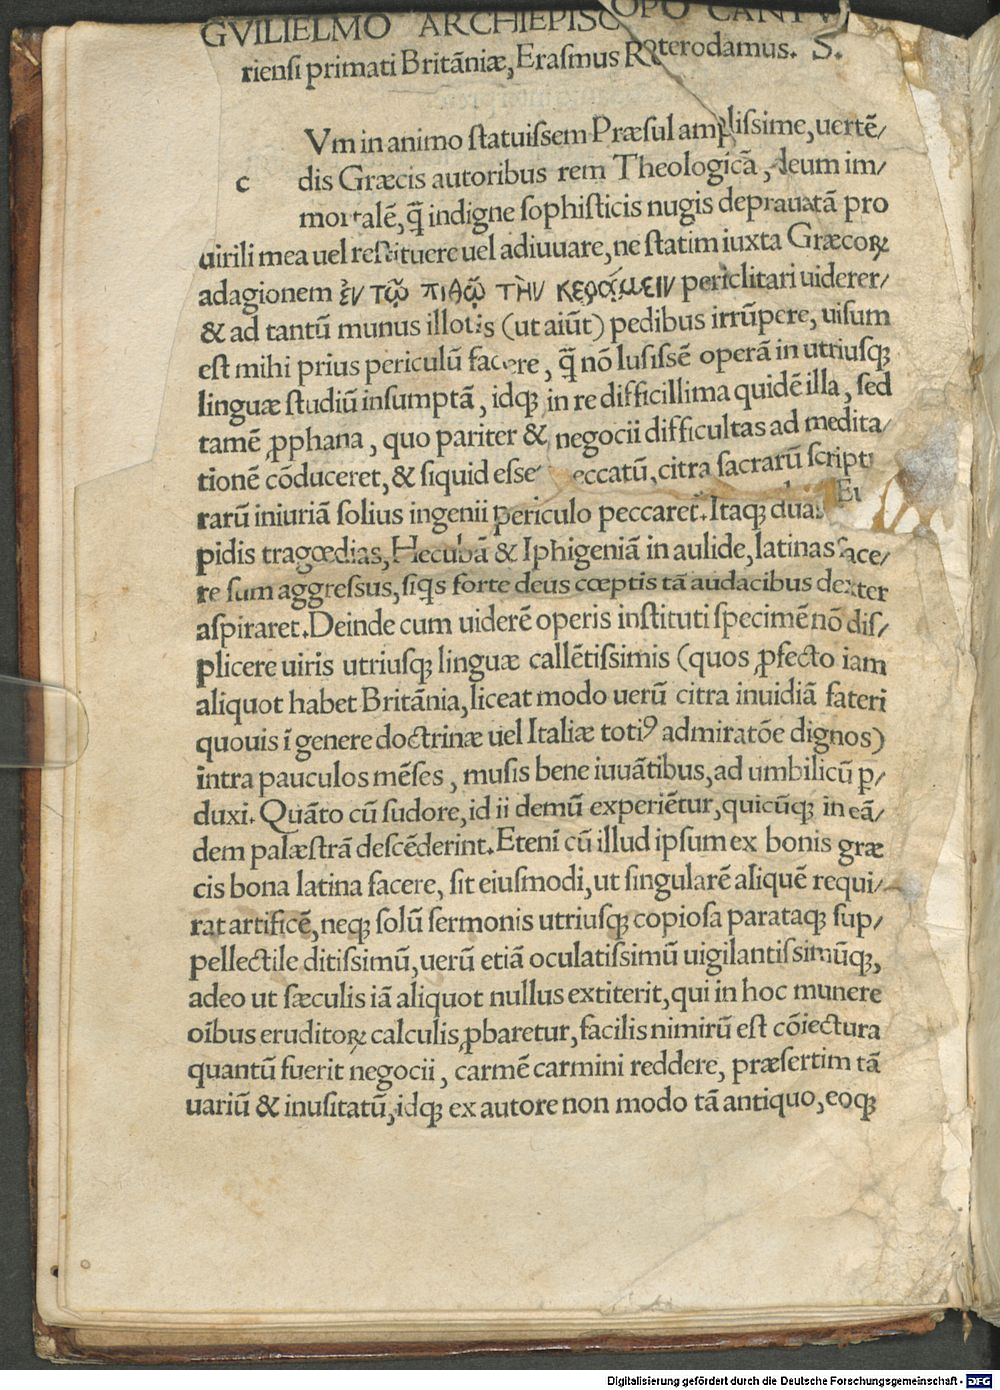 GVILIELMO ARCHIEPISCOPO CANTV
riensi primati Britāniæ, Erasmus Roterodamus. S.
Vm in animo statuissem Præsul amplissime, uertē/
c dis Græcis autoribus rem Theologicā, deum im/
mortalē, q̄ indigne sophisticis nugis deprauatā pro
uirili mea uel restituere uel adiuuare, ne statim iuxta Græcoꝝ
adagionem ἐν τῷ πιθῷ τὴν κεραμειν periclitari uiderer/
& ad tantū munus illotis (ut aiūt) pedibus irrūpere, uisum
est mihi prius periculū facere, q̄ nō lusissē operā in utriusꝗ
linguæ studiū insumptā, idꝗ in re difficillima quidē illa, sed
tamē ꝓphana, quo pariter & negocii difficultas ad medita/
tionē cōduceret, & siquid esse eccatū, citra sacrarū script
rarū iniuriā solius ingenii periculo peccaret. Itaꝗ duas Eu
pidis tragœdias, Hecubā & Iphigeniā in aulide, latinas face/
re sum aggressus, siq̄s forte deus cœptis tā audacibus dexter
aspiraret. Deinde cum uiderē operis instituti specimē nō dis/
plicere uiris utriusꝗ linguæ callētissimis (quos ꝓfecto iam
aliquot habet Britānia, liceat modo uerū citra inuidiā fateri
quouis ī genere doctrinæ uel Italiæ totiꝰ admiratōe dignos)
intra pauculos mēses, musis bene iuuātibus, ad umbilicū p̄/
duxi. Quāto cū sudore, id ii demū experiētur, quicūꝗ in eā/
dem palæstrā descēderint. Etenī cū illud ipsum ex bonis græ
cis bona latina facere, sit eiusmodi, ut singularē aliquē requi/
rat artificē, neꝗ solū sermonis utriusꝗ copiosa parataꝗ sup/
pellectile ditissimū, uerū etiā oculatissimū uigilantissimūꝗ,
adeo ut sæculis iā aliquot nullus extiterit, qui in hoc munere
oībus eruditoꝝ calculis ꝓbaretur, facilis nimirū est cōiectura
quantū fuerit negocii, carmē carmini reddere, præsertim tā
uariū & inusitatū, idꝗ ex autore non modo tā antiquo, eoꝗ
Digitalisierung gefördert durch die Deutsche Forschungsgemeinschaft - DFG